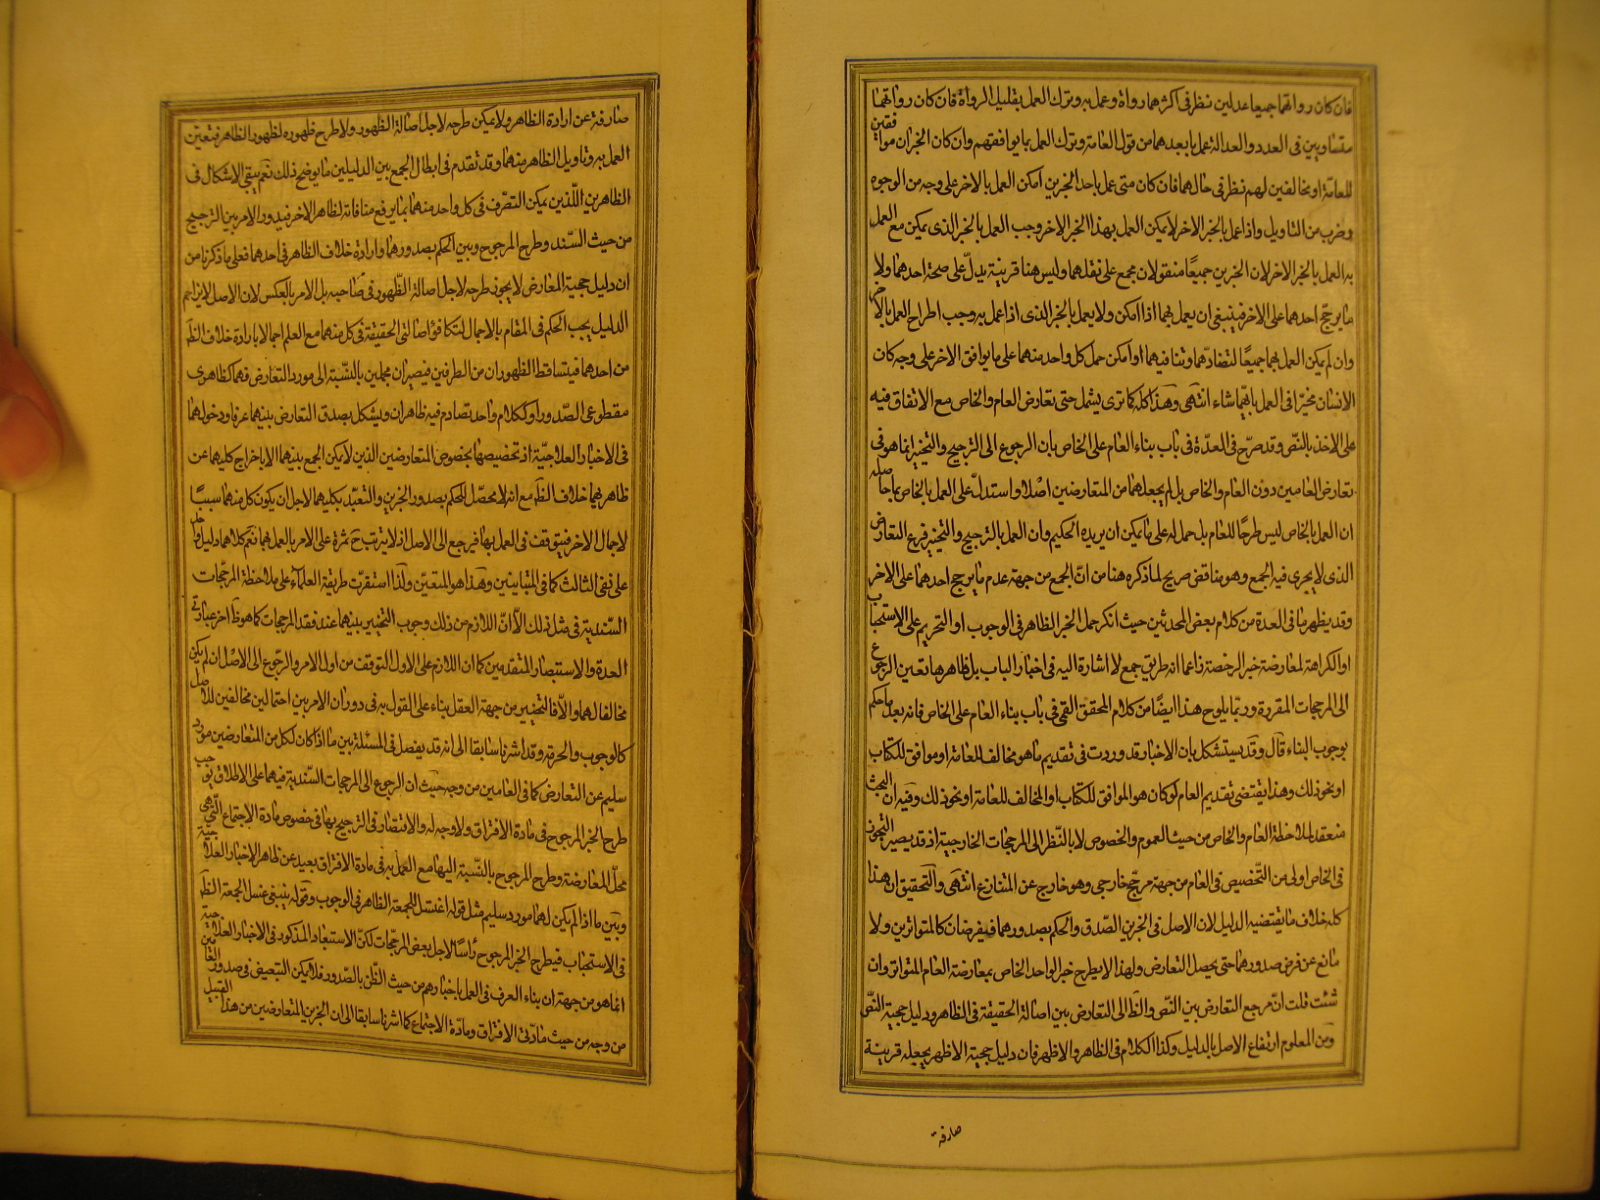 فان كان رواتهما جميعا عدلين نظر فى اكثرهما رواة وعمل به وترك العمل بقليل الرواة فان كان رواتهما
متساويين فى العدد والعدالة عمل بابعدهما من قول العامة وترك العمل بما يوافقهم وان كان الخبران موافقين
للعامة او مخالفين لهم نظر فى حالهما فان كان متى عمل باحد الخبرين امكن العمل بالاخر على وجه من الوجوه
وضرب من التاويل واذا عمل بالخبر الاخر لا يمكن العمل بهذا الخبر الاخر وجب العمل بالخبر الذى يمكن مع العمل
به العمل بالخبر الاخر لان الخبرين جميعًا منقولان مجمع على نقلهما وليس هنا قرينة يدلّ على صحة احدهما ولا
ما يرجّح احدهما على الاخر فينبغى ان يعمل بهما اذا امكن ولا يعمل بالخبر الذى اذا عمل به وجب اطراح العمل بالاخر
وان لم يمكن العمل بهما جميعًا لتضادّهما وتنافيهما او امكن حمل كل واحد منهما على ما يوافق الاخر على وجه كان
الانسان مخيّرا فى العمل بايّهما شاء انتهى وهذا كله كما ترى يشمل حتى تعارض العام والخاص مع الاتفاق فيه
على الاخذ بالنصّ وقد صرّح فى العدّة فى باب بناء العام على الخاص بان الرجوع الى الترجيح والتخيير انما هو فى
تعارض العامين دون العام والخاص بل لم يجعلهما من المتعارضين اصلا واستدلّ على العمل بالخاص بما حاصله
ان العمل بالخاص ليس طرحًا للعام بل حمل له على ما يمكن ان يريده الحكيم وان العمل بالترجيح والتخيير فرع التعارض
الذى لا يجرى فيه الجمع وهو مناقض صريح لما ذكره هنا من انّ الجمع من جهة عدم ما يرجح احدهما على الاخر
وقد يظهر ما فى العدة من كلام بعض المحدثين حيث انكر حمل الخبر الظاهر فى الوجوب او التحريم على الاستحباب
او الكراهة لمعارضة خبر الرخصة زاعما انه طريق جمع لا اشارة اليه فى اخبار الباب بل ظاهرها تعين الرجوع
الى المرجحات المقررة وربّما يلوح هذا ايضًا من كلام المحقق القمى فى باب بناء العام على الخاص فانه بعد ما حكم
بوجوب البناء قال وقد يستشكل بان الاخبار قد وردت فى تقديم ما هو مخالف للعامة او موافق للكتاب
او نحو ذلك وهذا يقتضى تقديم العام لو كان هو الموافق للكتاب او المخالف للعامة او نحو ذلك وفيه ان البحث
منعقد لملاحظة العام والخاص من حيث العموم والخصوص لا بالنّظر الى المرجحات الخارجية اذ قد يصير التجوز
فى الخاص اولى من التّخصيص فى العام من جهة مرجّح خارجى وهو خارج عن المتنازع انتهى والتحقيق ان هذا
كله خلاف ما يقتضيه الدليل لان الاصل فى الخبرين الصّدق والحكم بصدورهما فيفرضان كالمتواترين ولا
مانع عن فرض صدورهما حتى يحصل التعارض ولهذا لا يطرح خبر الواحد الخاص بمعارضة العام المتواتر وان
شئت قلت انّ مرجع التعارض بين النّص والظا الى التعارض بين اصالة الحقيقة فى الظاهر ودليل حجية النّص
ومن المعلوم ارتفاع الاصل بالدليل وكذا الكلام فى الظاهر والاظهر فان دليل حجية الاظهر يجعله قرينة
صارفة
صارفة عن ارادة الظاهر ولا يمكن طرحه لاجل اصالة الظهور ولا طرح ظهوره لظهور الظاهر فتعين
العمل به وتاويل الظاهر منهما وقد تقدم فى ابطال الجمع بين الدليلين ما يوضح ذلك نعم يبقى الاشكال فى
الظاهرين اللّذين يمكن التصّرف فى كل واحد منهما بما يرفع منافاته لظاهر الاخر فيدور الامر بين الترجيح
من حيث السّند وطرح المرجوح وبين الحكم بصدورهما وارادة خلاف الظاهر فى احدهما فعلى ما ذكرنا من
ان دليل حجية المعارض لا يجوز طرحه لاجل اصالة الظّهور فى صاحبه بل الامر بالعكس لان الاصل لا يزاحم
الدليل يجب الحكم فى المقام بالاجمال لتكافؤ اصالتى الحقيقة فى كل منهما مع العلم اجمالا بارادة خلاف الظ
من احدهما فيتساقط الظهوران من الطرفين فيصيران مجملين بالنّسبة الى مورد التعارض فهما كظاهرى
مقطوعى الصّدور او ككلام واحد تصادم فيه ظاهران ويشكل بصدق التعارض بينهما عرفا ودخولهما
فى الاخبار العلاجيّة اذ تخصيصها بخصوص المتعارضين الذين لا يمكن الجمع بينهما الا باخراج كليهما عن
ظاهريهما خلاف الظ مع انه لا محصّل للحكم بصدور الخبرين والتعبّد بكليهما لاجل ان يكون كل منهما سببًا
لاجمال الاخر فيتوقف فى العمل بهما فيرجع الى الاصل اذ لا يترتب ح ثمرة على الامر بالعمل بهما نعم كلاهما دليل واحد
على نفى الثالث كما فى المتباينين وهذا هو المتعيّن ولذا استقرّت طريقة العلماء على ملاحظة المرجّحات
السّندية فى مثل ذلك الّا انّ اللازم من ذلك وجوب التخيير بينهما عند فقد المرجحات كما هو ظ اخر عبارتى
العدة والاستبصار المتقدمين كما ان اللازم على الاول التوقف من اول الامر والرّجوع الى الاصل ان لم يكن
مخالفا لهما والّا فالتخيير من جهة العقل بناء على القول به فى دوران الامر بين احتمالين مخالفين للاصل
كالوجوب والحرمة وقد اشرنا سابقا الى انه قد يفصل فى المسئلة بين ما اذا كان لكل من المتعارضين مورد
سليم عن التعارض كما فى العامين من وجه حيث ان الرجوع الى المرجحات السّندية فيهما على الاطلاق يوجب
طرح الخبر المرجوح فى مادة الافتراق ولا وجه له والاقتصار فى الترجيح بها فى خصوص مادة الاجتماع التى هى
محلّ المعارضة وطرح المرجوح بالنّسبة اليها مع العمل به فى مادة الافتراق بعيد عن ظاهر الاخبار العلاجية
وبين ما اذا لم يكن لهما مورد سليم مثل قوله اغتسل للجمعة الظاهر فى الوجوب وقوله ينبغى غسل الجمعة الظ
فى الاستحباب فيطرح الخبر المرجوح رأسًا لاجل بعض المرجّحات لكنّ الاستبعاد المذكور فى الاخبار العلاجية
انما هو من جهة ان بناء العرف فى العمل باخبارهم من حيث الظّن بالصّدور فلا يمكن التبعيض فى صدور العامّين
من وجه من حيث مادّتى الافتراق ومادّة الاجتماع كما اشرنا سابقا الى ان الخبرين المتعارضين من هذا القبيل